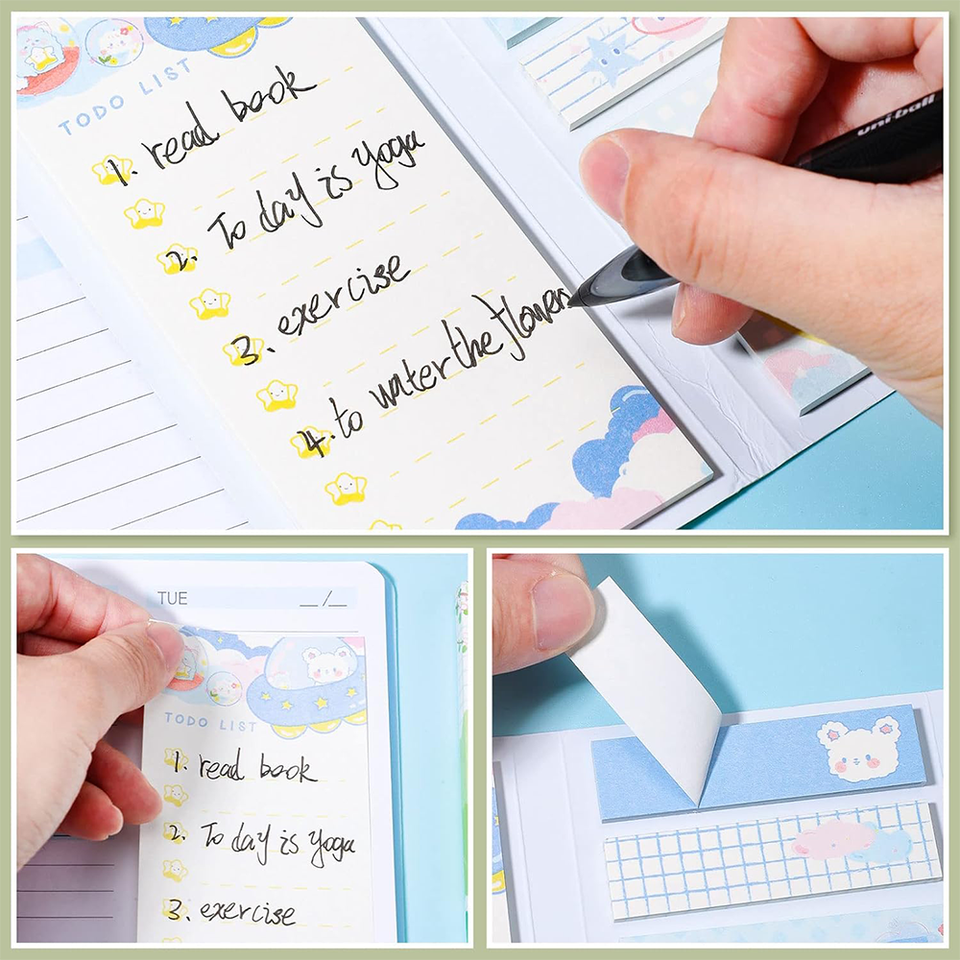 TODO LIST
1. read book
2. To day is yoga
3. exercise
4. to water the flowers
uni-ball
TUE
__/__
TODO LIST
1. read book
2. To day is yoga
3. exercise